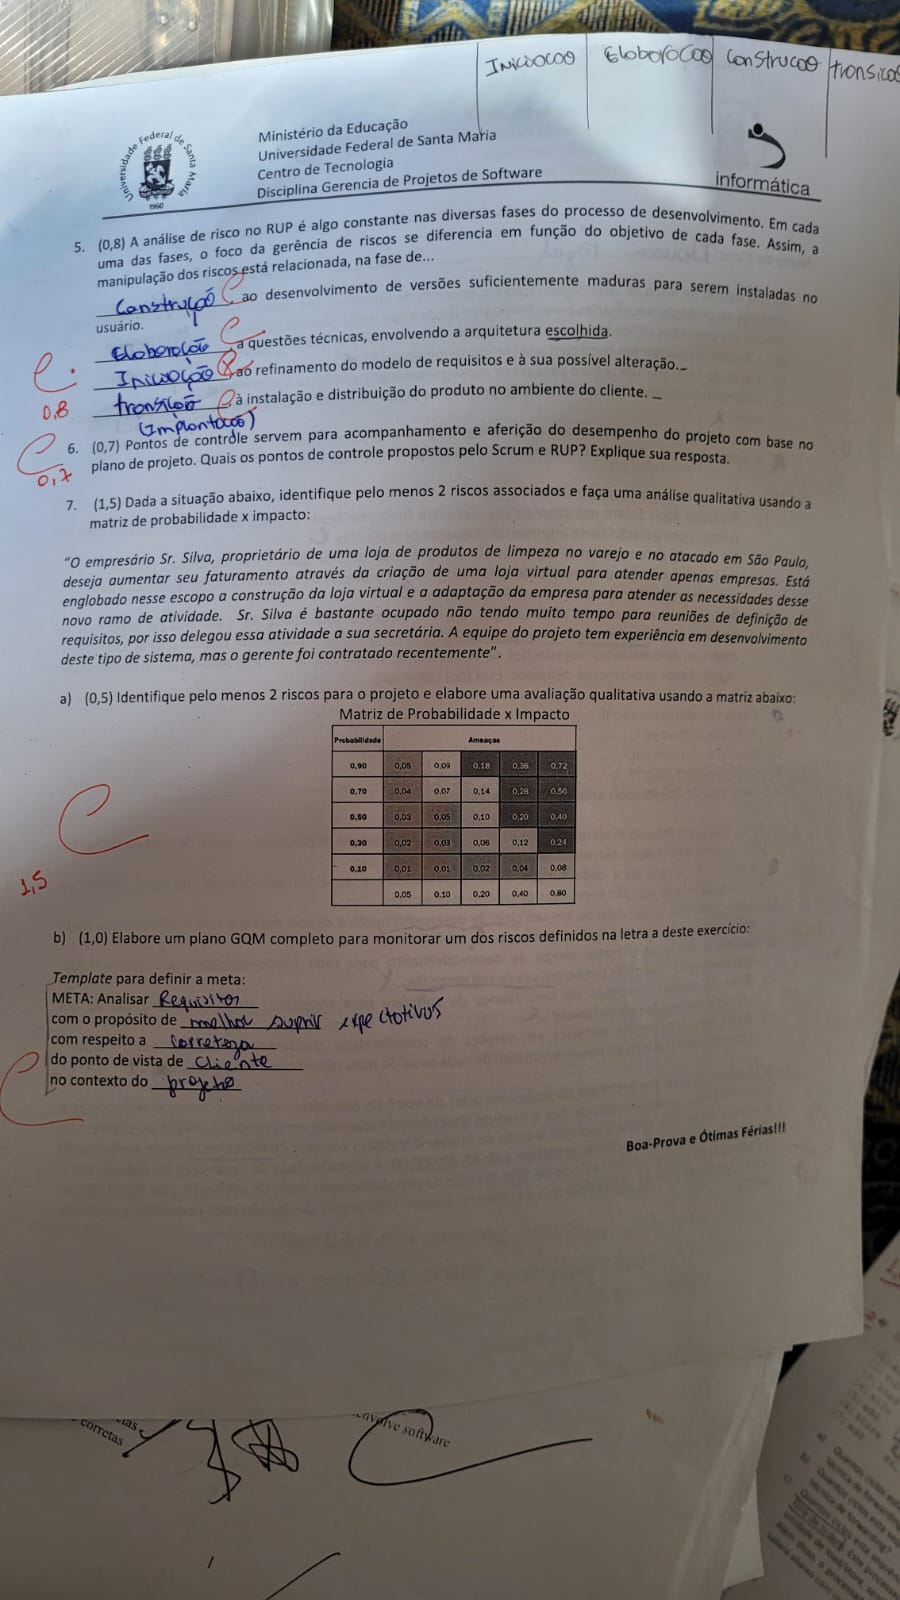 Iniciacao Elaboracao Construcao transicao
Ministério da Educação
Universidade Federal de Santa Maria
Centro de Tecnologia
Disciplina Gerencia de Projetos de Software
Universidade Federal de Santa Maria
1960
informática
5. (0,8) A análise de risco no RUP é algo constante nas diversas fases do processo de desenvolvimento. Em cada
uma das fases, o foco da gerência de riscos se diferencia em função do objetivo de cada fase. Assim, a
manipulação dos riscos está relacionada, na fase de...
Construção C ao desenvolvimento de versões suficientemente maduras para serem instaladas no
usuário.
Elaboração C a questões técnicas, envolvendo a arquitetura escolhida.
Iniciação C ao refinamento do modelo de requisitos e à sua possível alteração.
transição C, à instalação e distribuição do produto no ambiente do cliente.
(Implantação)
C.
0,8
6. (0,7) Pontos de controle servem para acompanhamento e aferição do desempenho do projeto com base no
plano de projeto. Quais os pontos de controle propostos pelo Scrum e RUP? Explique sua resposta.
C
0,7
7. (1,5) Dada a situação abaixo, identifique pelo menos 2 riscos associados e faça uma análise qualitativa usando a
matriz de probabilidade x impacto:
“O empresário Sr. Silva, proprietário de uma loja de produtos de limpeza no varejo e no atacado em São Paulo,
deseja aumentar seu faturamento através da criação de uma loja virtual para atender apenas empresas. Está
englobado nesse escopo a construção da loja virtual e a adaptação da empresa para atender as necessidades desse
novo ramo de atividade. Sr. Silva é bastante ocupado não tendo muito tempo para reuniões de definição de
requisitos, por isso delegou essa atividade a sua secretária. A equipe do projeto tem experiência em desenvolvimento
deste tipo de sistema, mas o gerente foi contratado recentemente”.
a) (0,5) Identifique pelo menos 2 riscos para o projeto e elabore uma avaliação qualitativa usando a matriz abaixo:
Matriz de Probabilidade x Impacto
Probabilidade Ameaças
0,90 0,05 0,09 0,18 0,36 0,72
0,70 0,04 0,07 0,14 0,28 0,56
0,50 0,03 0,05 0,10 0,20 0,40
0,30 0,02 0,03 0,06 0,12 0,24
0,10 0,01 0,01 0,02 0,04 0,08
0,05 0,10 0,20 0,40 0,80
C
1,5
b) (1,0) Elabore um plano GQM completo para monitorar um dos riscos definidos na letra a deste exercício:
Template para definir a meta:
META: Analisar Requisitos
com o propósito de melhor suprir expectativas
com respeito a correteza
do ponto de vista de cliente
no contexto do projeto
C
Boa-Prova e Ótimas Férias!!!
corretas
envolve software